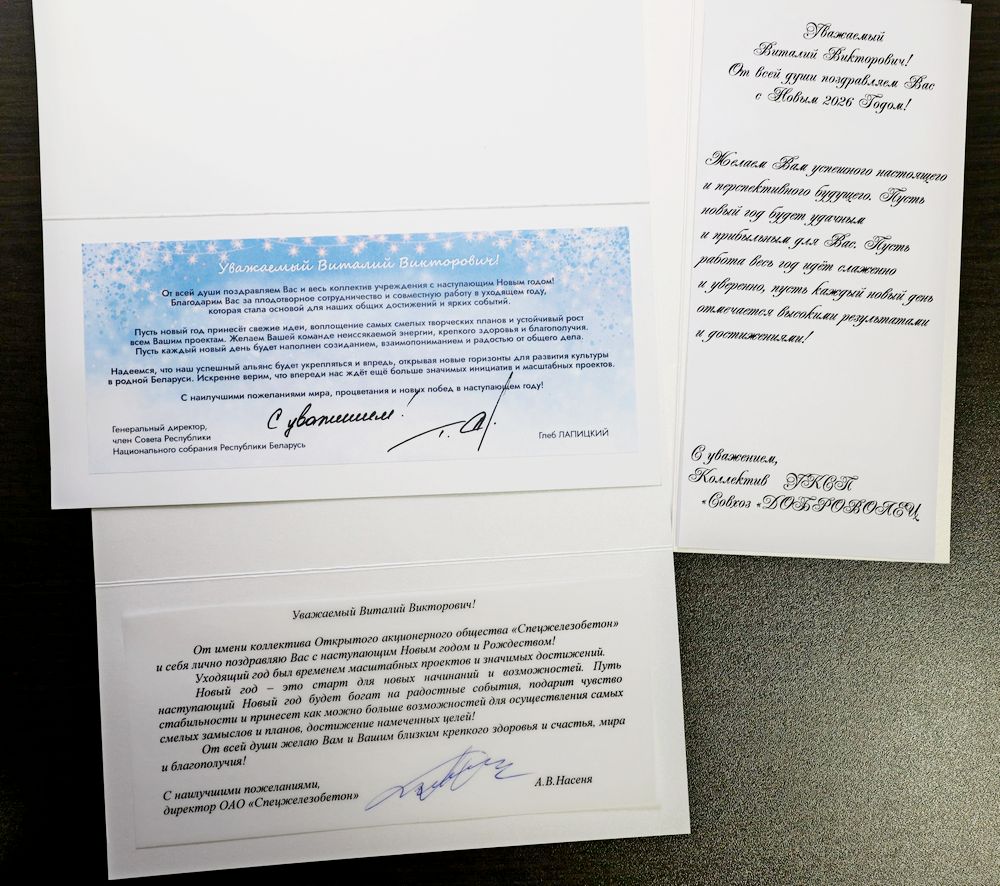 Уважаемый Виталий Викторович!
От всей души поздравляем Вас и весь коллектив учреждения с наступающим Новым годом!
Благодарим Вас за плодотворное сотрудничество и совместную работу в уходящем году,
которая стала основой для наших общих достижений и ярких событий.
Пусть новый год принесёт свежие идеи, воплощение самых смелых творческих планов и устойчивый рост
всем Вашим проектам. Желаем Вашей команде неиссякаемой энергии, крепкого здоровья и благополучия.
Пусть каждый новый день будет наполнен созиданием, взаимопониманием и радостью от общего дела.
Надеемся, что наш успешный альянс будет укрепляться и впредь, открывая новые горизонты для развития культуры
в родной Беларуси. Искренне верим, что впереди нас ждёт ещё больше значимых инициатив и масштабных проектов.
С наилучшими пожеланиями мира, процветания и новых побед в наступающем году!
С уважением!
Генеральный директор,
член Совета Республики
Национального собрания Республики Беларусь
Глеб ЛАПИЦКИЙ
Уважаемый
Виталий Викторович!
От всей души поздравляем Вас
с Новым 2026 Годом!
Желаем Вам успешного настоящего
и перспективного будущего. Пусть
новый год будет удачным
и прибыльным для Вас. Пусть
работа весь год идёт слаженно
и уверенно, пусть каждый новый день
отмечается высокими результатами
и достижениями!
С уважением,
Коллектив УКСП
«Совхоз «ДОБРОВОЛЕЦ
Уважаемый Виталий Викторович!
От имени коллектива Открытого акционерного общества «Спецжелезобетон»
и себя лично поздравляю Вас с наступающим Новым годом и Рождеством!
Уходящий год был временем масштабных проектов и значимых достижений.
Новый год – это старт для новых начинаний и возможностей. Путь
наступающий Новый год будет богат на радостные события, подарит чувство
стабильности и принесет как можно больше возможностей для осуществления самых
смелых замыслов и планов, достижение намеченных целей!
От всей души желаю Вам и Вашим близким крепкого здоровья и счастья, мира
и благополучия!
С наилучшими пожеланиями,
директор ОАО «Спецжелезобетон»
А.В.Насеня